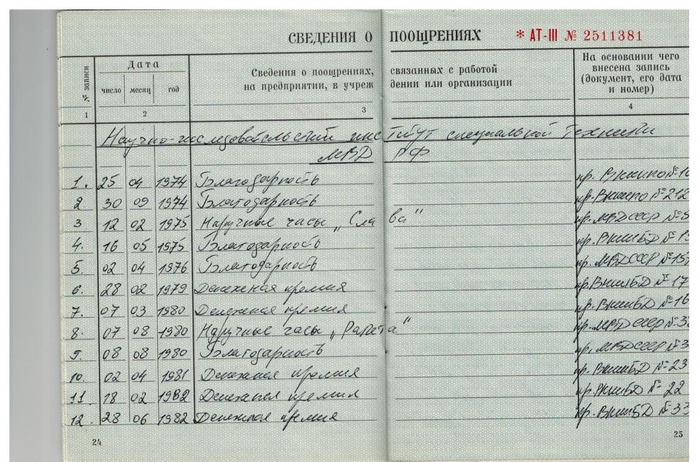 СВЕДЕНИЯ О ПООЩРЕНИЯХ * АТ-III № 2511381
№ записи
Дата
число месяц год
Сведения о поощрениях, связанных с работой
на предприятии, в учреждении или организации
На основании чего
внесена запись
(документ, его дата
и номер)
1 2 3 4
Научно-исследовательский институт специальной техники
МВД РФ
1. 25 04 1974 Благодарность пр. ВНИИПО № 10
2 30 09 1974 Благодарность пр. ВНИИПО № 212
3 12 02 1975 Наручные часы „Слава" пр. МВД СССР № 5
4. 16 05 1975 Благодарность пр. ВНИИБД № 15
5. 02 04 1976 Благодарность пр. МВД СССР № 157
6. 28 02 1979 Денежная премия пр. ВНИИБД № 17
7. 07 03 1980 Денежная премия пр. ВНИИБД № 16
8. 07 08 1980 Наручные часы „Ракета" пр. МВД СССР № 3
9. 08 08 1980 Благодарность пр. МВД СССР № 3
10. 02 04 1981 Денежная премия пр. ВНИИБД № 23
11 18 02 1982 Денежная премия пр. ВНИИБД № 22
12. 28 06 1982 Денежная премия пр. ВНИИБД № 33
24 25